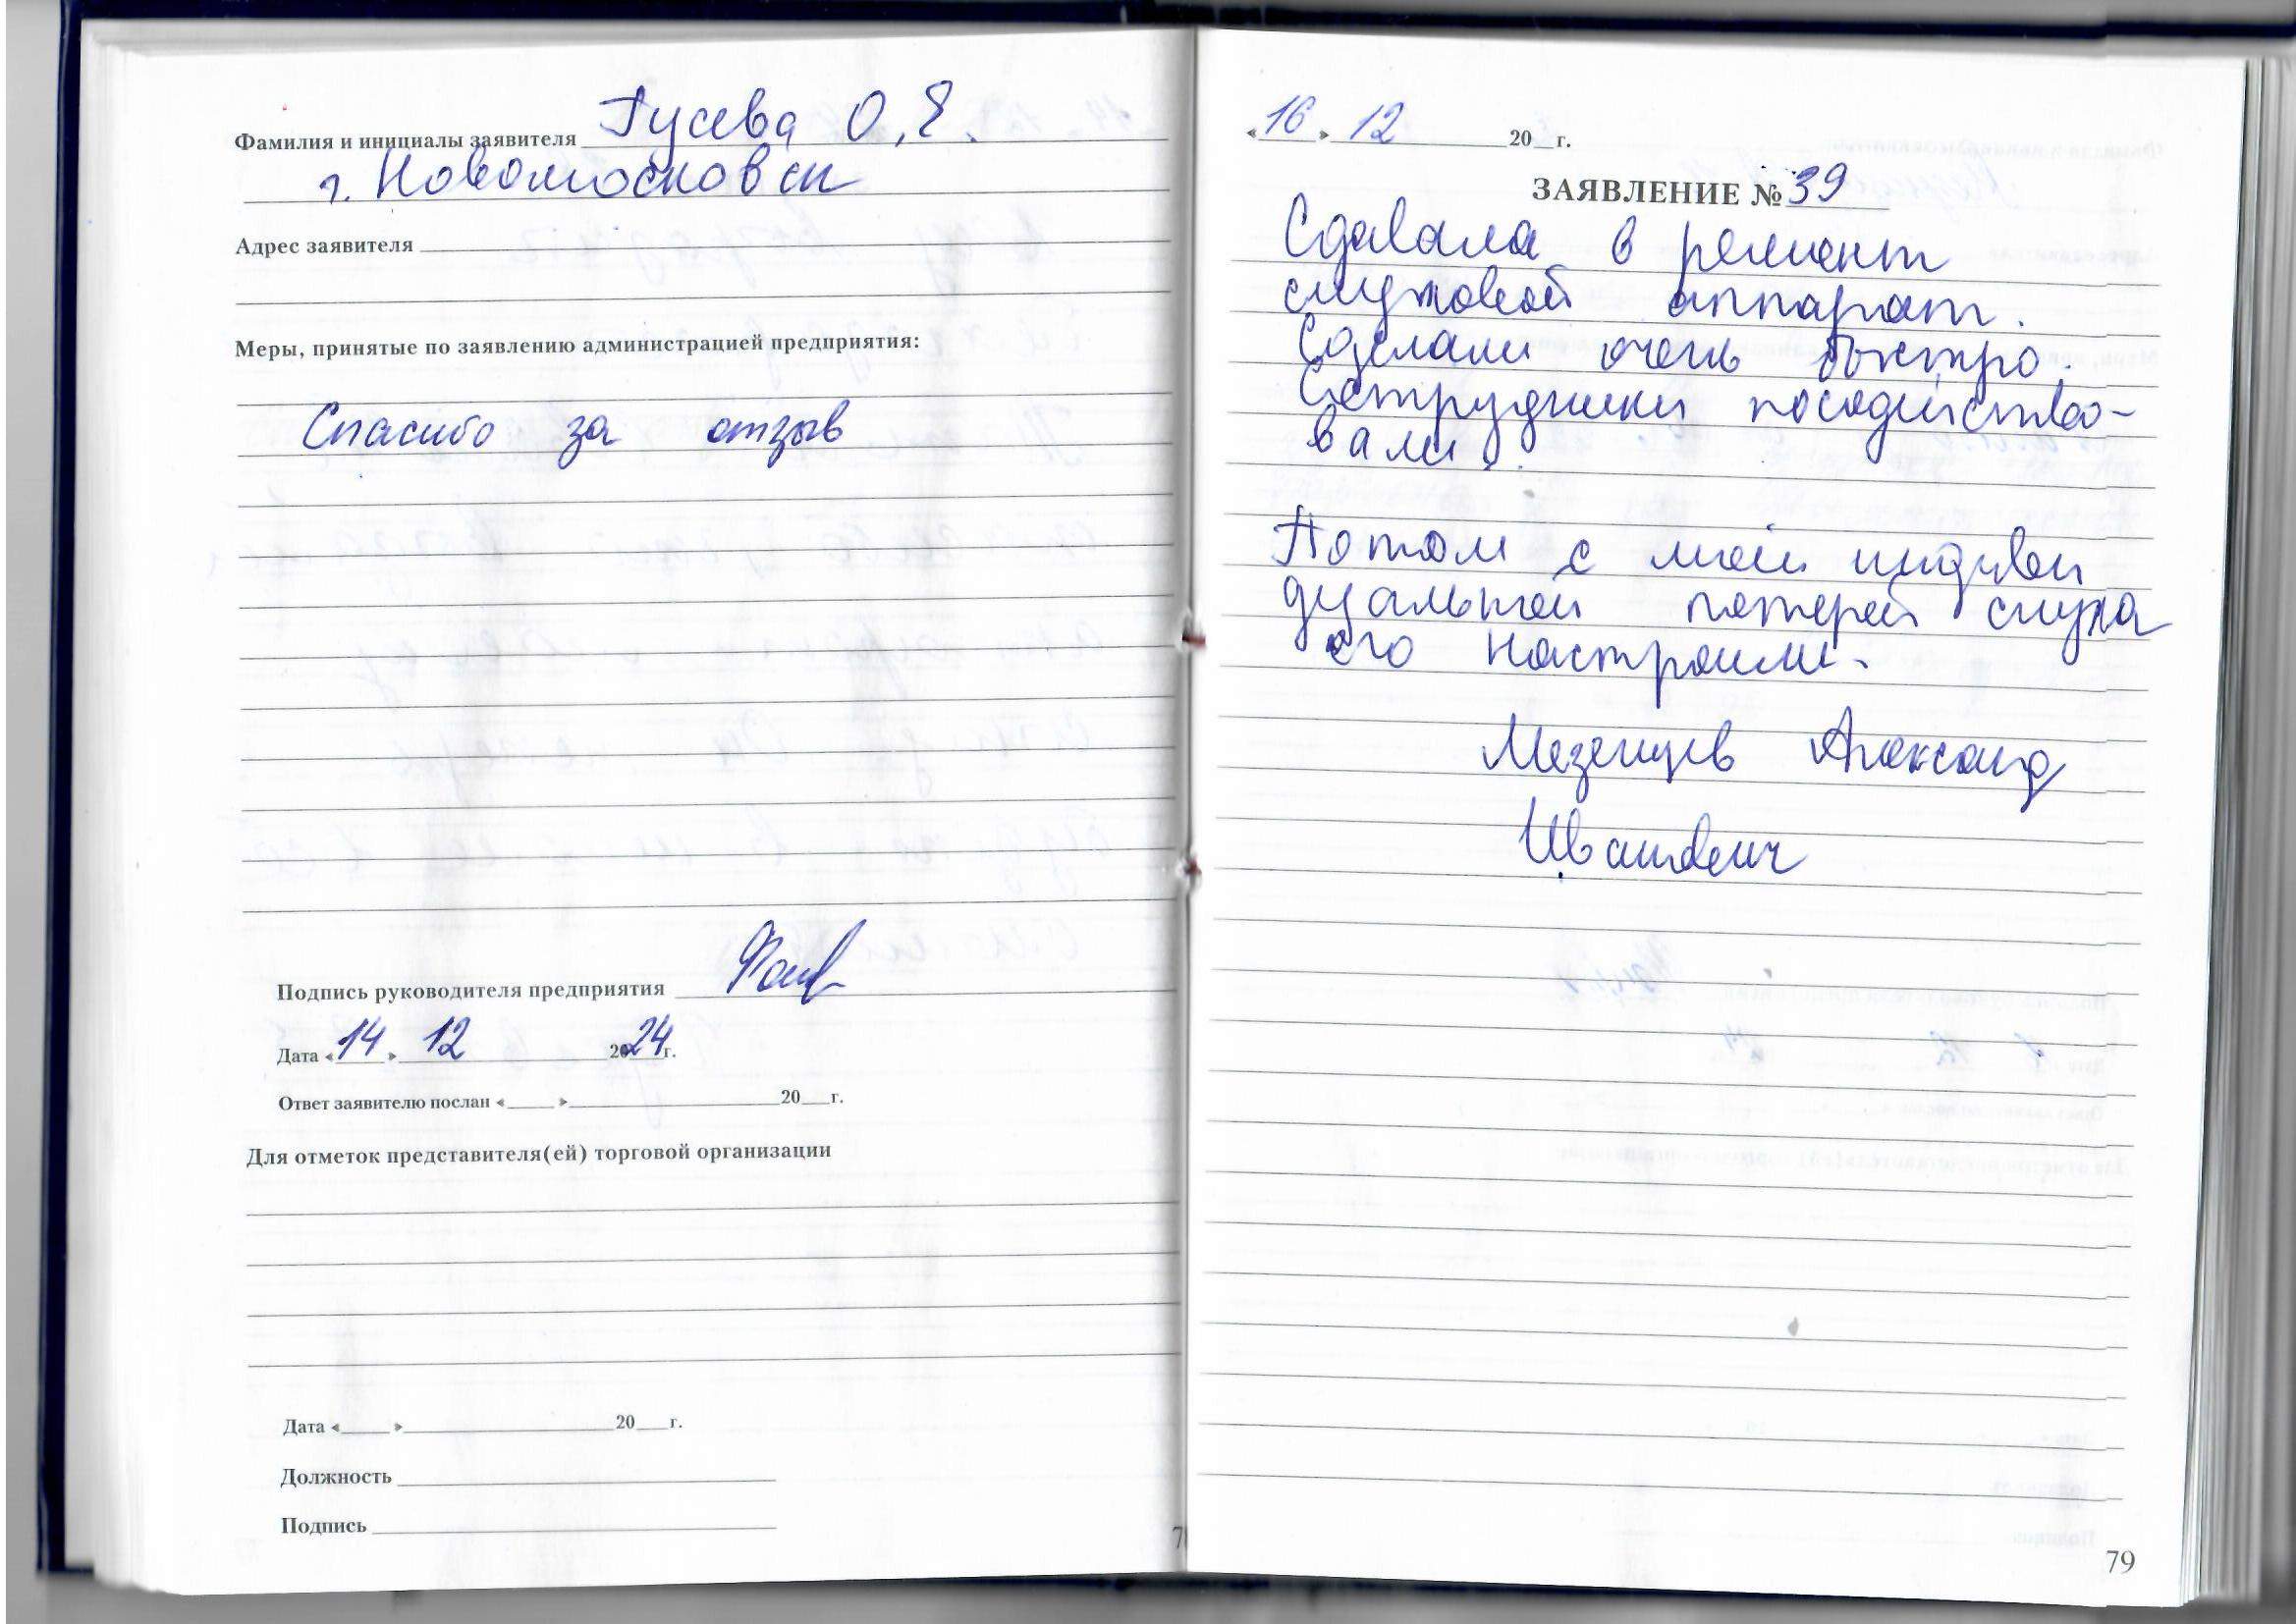 Фамилия и инициалы заявителя Гусева О.Е.
г. Новомосковск
Адрес заявителя
Меры, принятые по заявлению администрацией предприятия:
Спасибо за отзыв
Подпись руководителя предприятия
Дата «14» 12 2024г.
Ответ заявителю послан «___»___ 20__г.
Для отметок представителя(ей) торговой организации
Дата «___»___ 20__г.
Должность
Подпись
«16» 12 20__г.
ЗАЯВЛЕНИЕ № 39
Сдавала в ремонт
слуховой аппарат.
Сделали очень быстро.
Сотрудники посодейство-
вали.
Потом с моей индиви
дуальной потерей слуха
его настроили.
Мезенцев Александ
Иванович
79